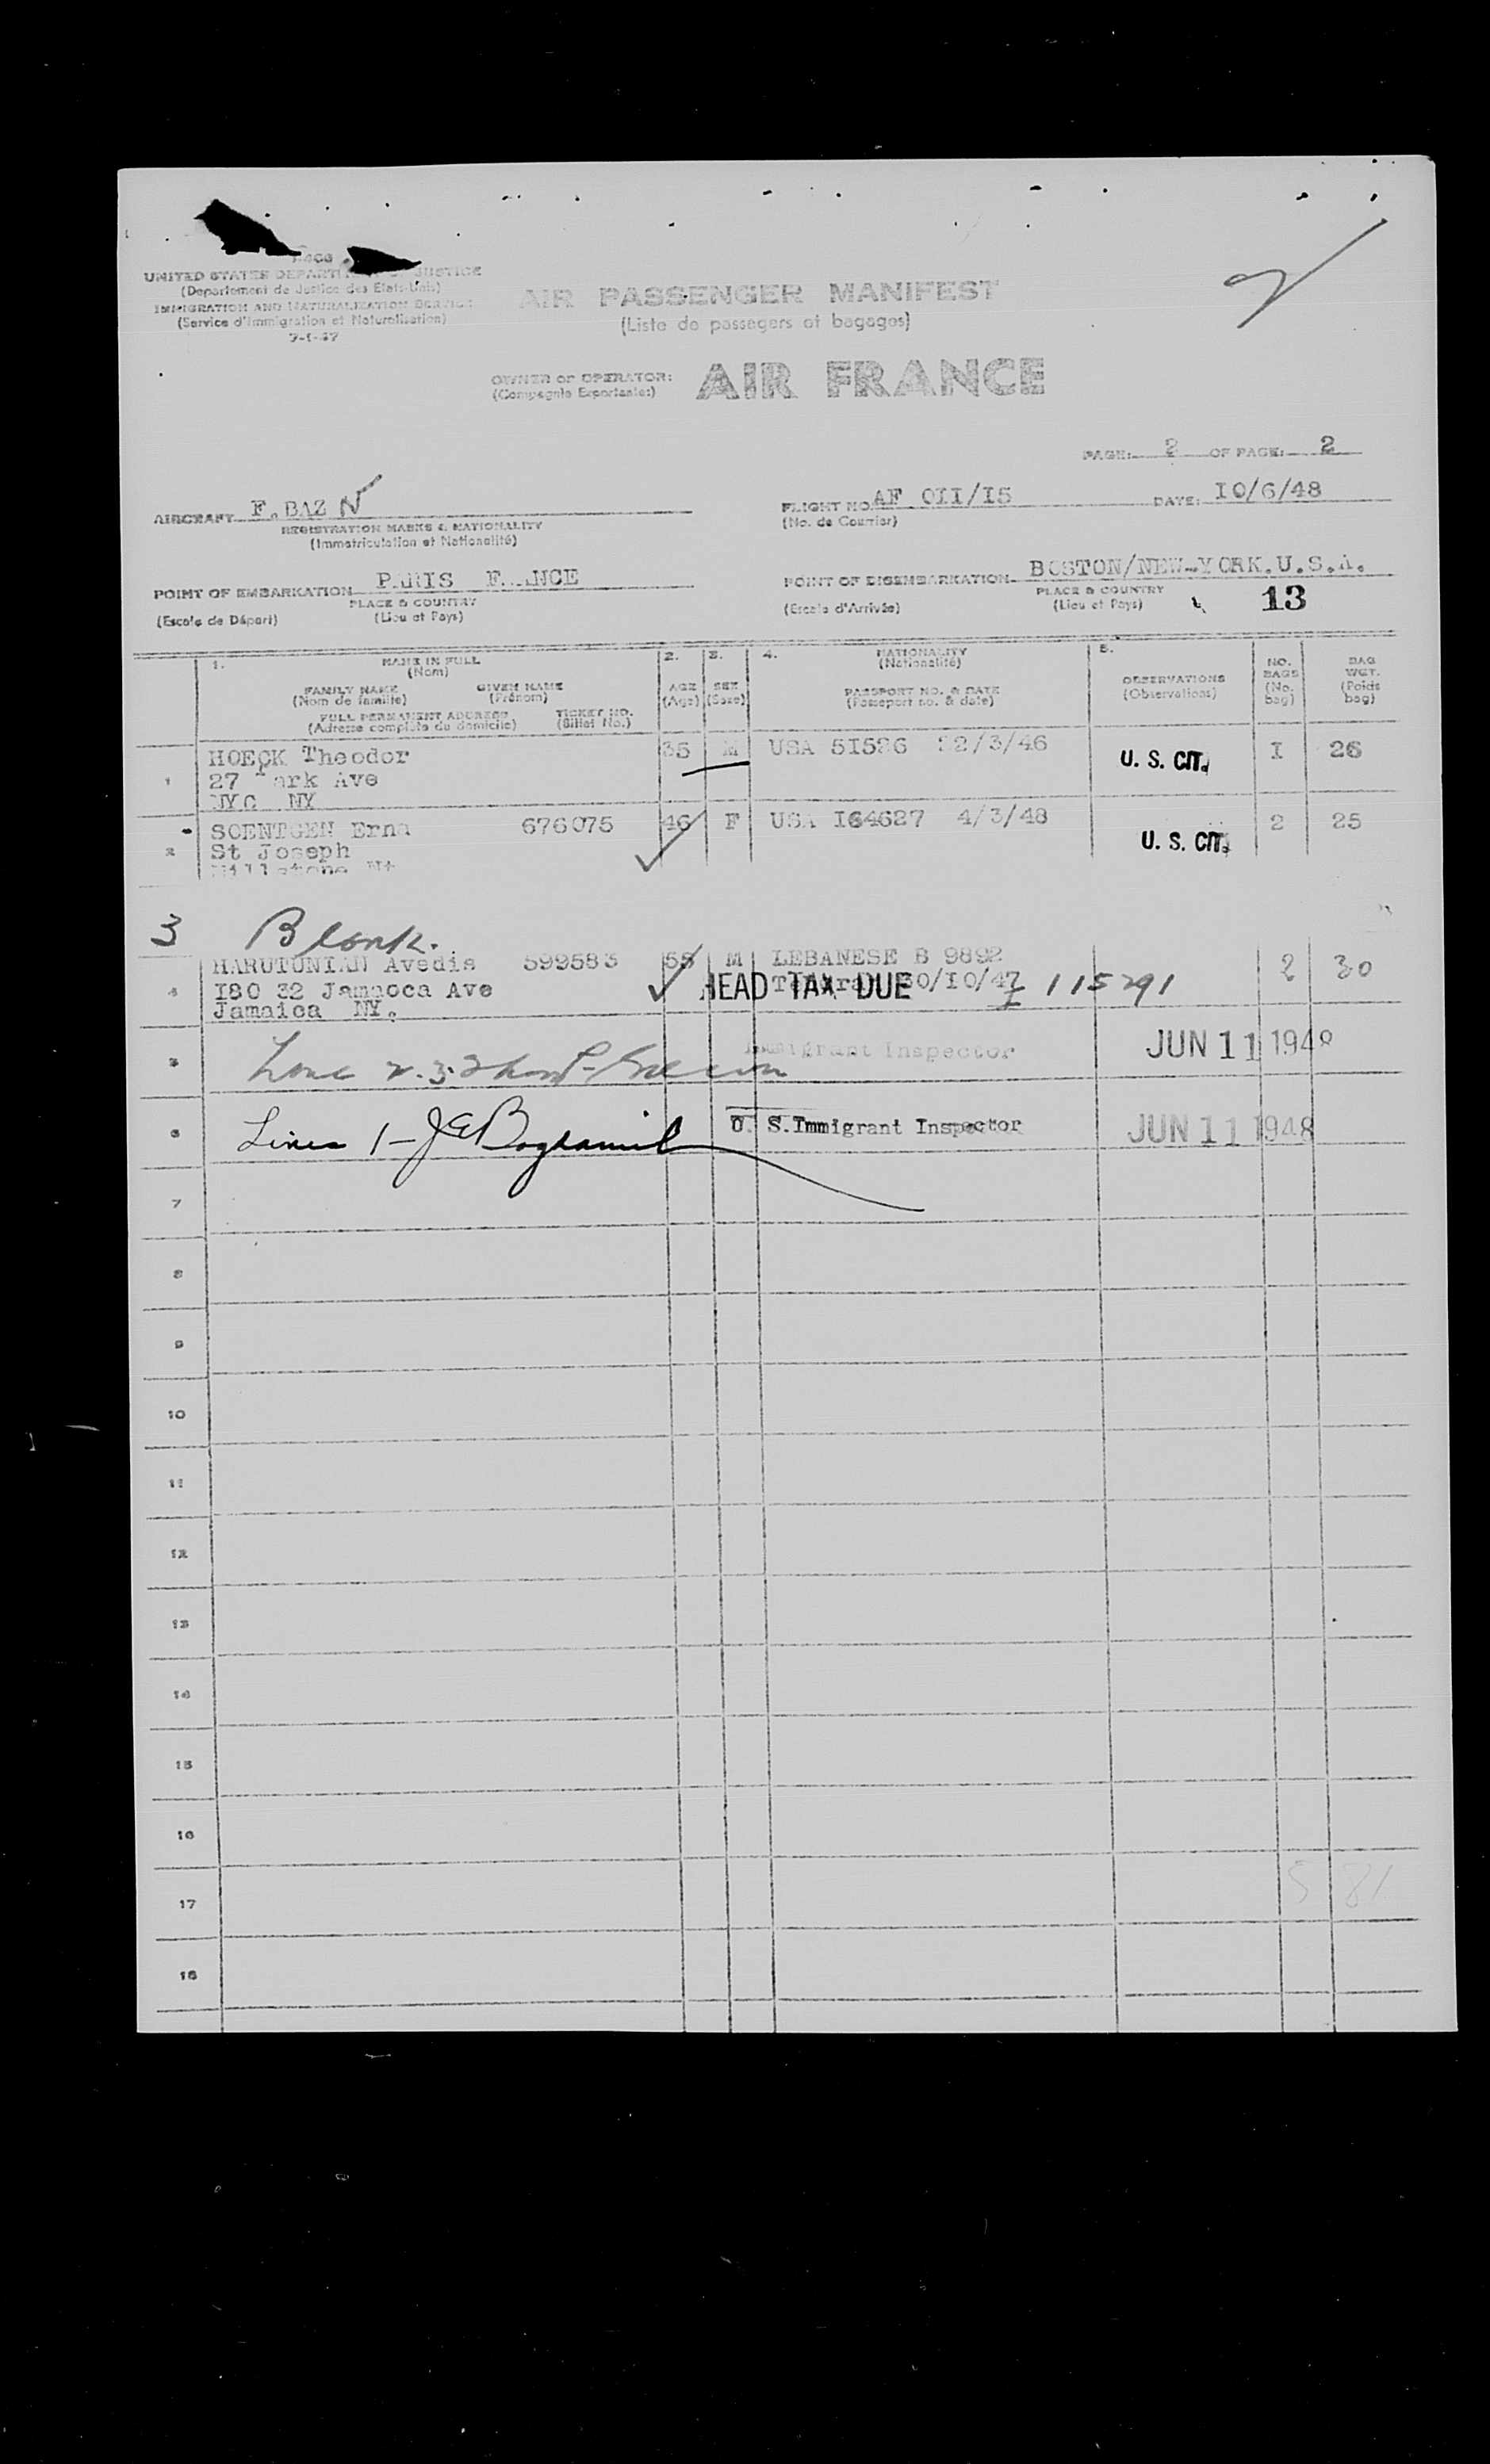 UNITED STATES DEPARTMENT OF JUSTICE
(Departement de Justice des Etats-Unis)
IMMIGRATION AND NATURALIZATION SERVICE
(Service d'Immigration et Naturalisation)
7-1-47
AIR PASSENGER MANIFEST
(Liste de passegers et bagages)
OWNER OF OPERATOR: AIR FRANCE
(Compagnie Exportante:)
PAGE: 2 OF PAGE: 2
AIRCRAFT F.BAZ N FLIGHT NO. AF OII/I5 DATE: IO/6/48
REGISTRATION MARKS & NATIONALITY (No. de Courrier)
(Immatriculation et Nationalité)
POINT OF EMBARKATION PARIS FRANCE POINT OF DISEMBARKATION BOSTON/NEW-YORK.U.S.A.
PLACE & COUNTRY PLACE & COUNTRY
(Escale de Départ) (Lieu et Pays) (Escale d'Arrivée) (Lieu et Pays) 13
1. NAME IN FULL 2. 3. 4. NATIONALITY 5.
(Nom) (Nationalité)
FAMILY NAME GIVEN NAME AGE SEX PASSPORT NO. & DATE OBSERVATIONS NO. BAGS BAG WGT.
(Nom de famille) (Prénom) (Age) (Sexe) (Passeport no. & date) (Observations) (No. bag) (Poids bag)
FULL PERMANENT ADDRESS TICKET NO.
(Adresse complete du domicile) (Billet No.)
1 HOECK Theodor 35 M USA 5I526 22/3/46 U. S. CIT. I 26
27 Park Ave
NYC NY
2 SOENTGEN Erna 676075 46 F USA I64627 4/3/48 U. S. CIT. 2 25
St Joseph
3 Blank.
4 HARUTUNIAN Avedis 599583 55 M LEBANESE B 9892 2 30
I80 32 Jamaoca Ave HEAD TAX DUE 30/IO/47 115291
Jamaica NY.
5 Immigrant Inspector JUN 11 1948
6 Lines 1 - U. S. Immigrant Inspector JUN 11 1948
7
8
9
10
11
12
13
14
15
16
17 5 81
18